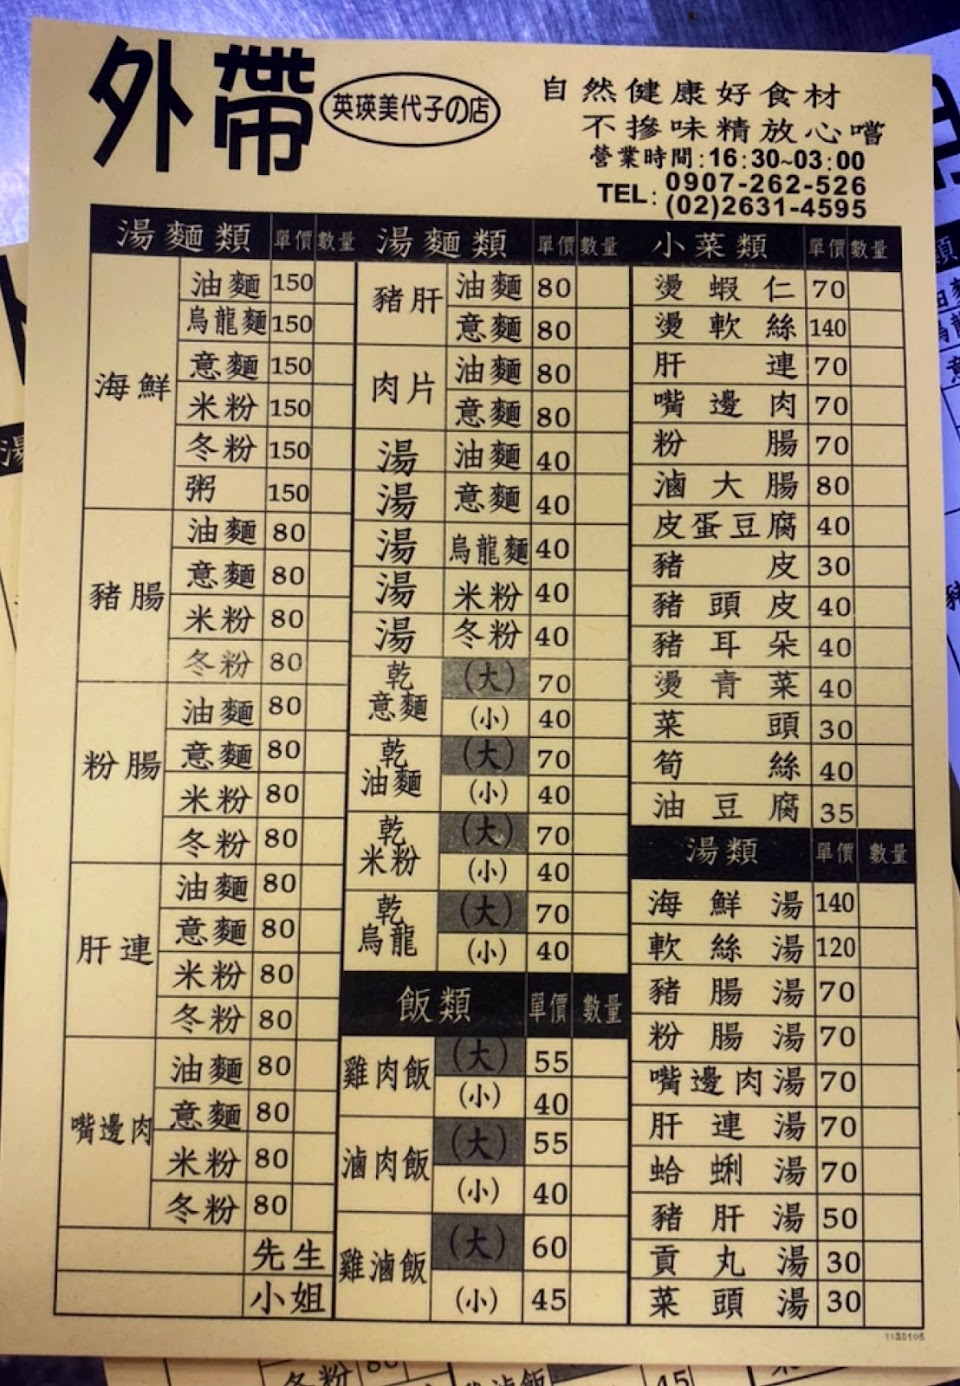 外帶
英瑛美代子の店
自然健康好食材
不摻味精放心嚐
營業時間:16:30~03:00
TEL: 0907-262-526
(02)2631-4595
湯麵類 單價 數量
海鮮
油麵 150
烏龍麵 150
意麵 150
米粉 150
冬粉 150
粥 150
豬腸
油麵 80
意麵 80
米粉 80
冬粉 80
粉腸
油麵 80
意麵 80
米粉 80
冬粉 80
肝連
油麵 80
意麵 80
米粉 80
冬粉 80
嘴邊肉
油麵 80
意麵 80
米粉 80
冬粉 80
先生
小姐
湯麵類 單價 數量
豬肝
油麵 80
意麵 80
肉片
油麵 80
意麵 80
湯 油麵 40
湯 意麵 40
湯 烏龍麵 40
湯 米粉 40
湯 冬粉 40
乾意麵
(大) 70
(小) 40
乾油麵
(大) 70
(小) 40
乾米粉
(大) 70
(小) 40
乾烏龍
(大) 70
(小) 40
飯類 單價 數量
雞肉飯
(大) 55
(小) 40
滷肉飯
(大) 55
(小) 40
雞滷飯
(大) 60
(小) 45
小菜類 單價 數量
燙蝦仁 70
燙軟絲 140
肝連 70
嘴邊肉 70
粉腸 70
滷大腸 80
皮蛋豆腐 40
豬皮 30
豬頭皮 40
豬耳朵 40
燙青菜 40
菜頭 30
筍絲 40
油豆腐 35
湯類 單價 數量
海鮮湯 140
軟絲湯 120
豬腸湯 70
粉腸湯 70
嘴邊肉湯 70
肝連湯 70
蛤蜊湯 70
豬肝湯 50
貢丸湯 30
菜頭湯 30
冬粉 80
雞滷飯
45